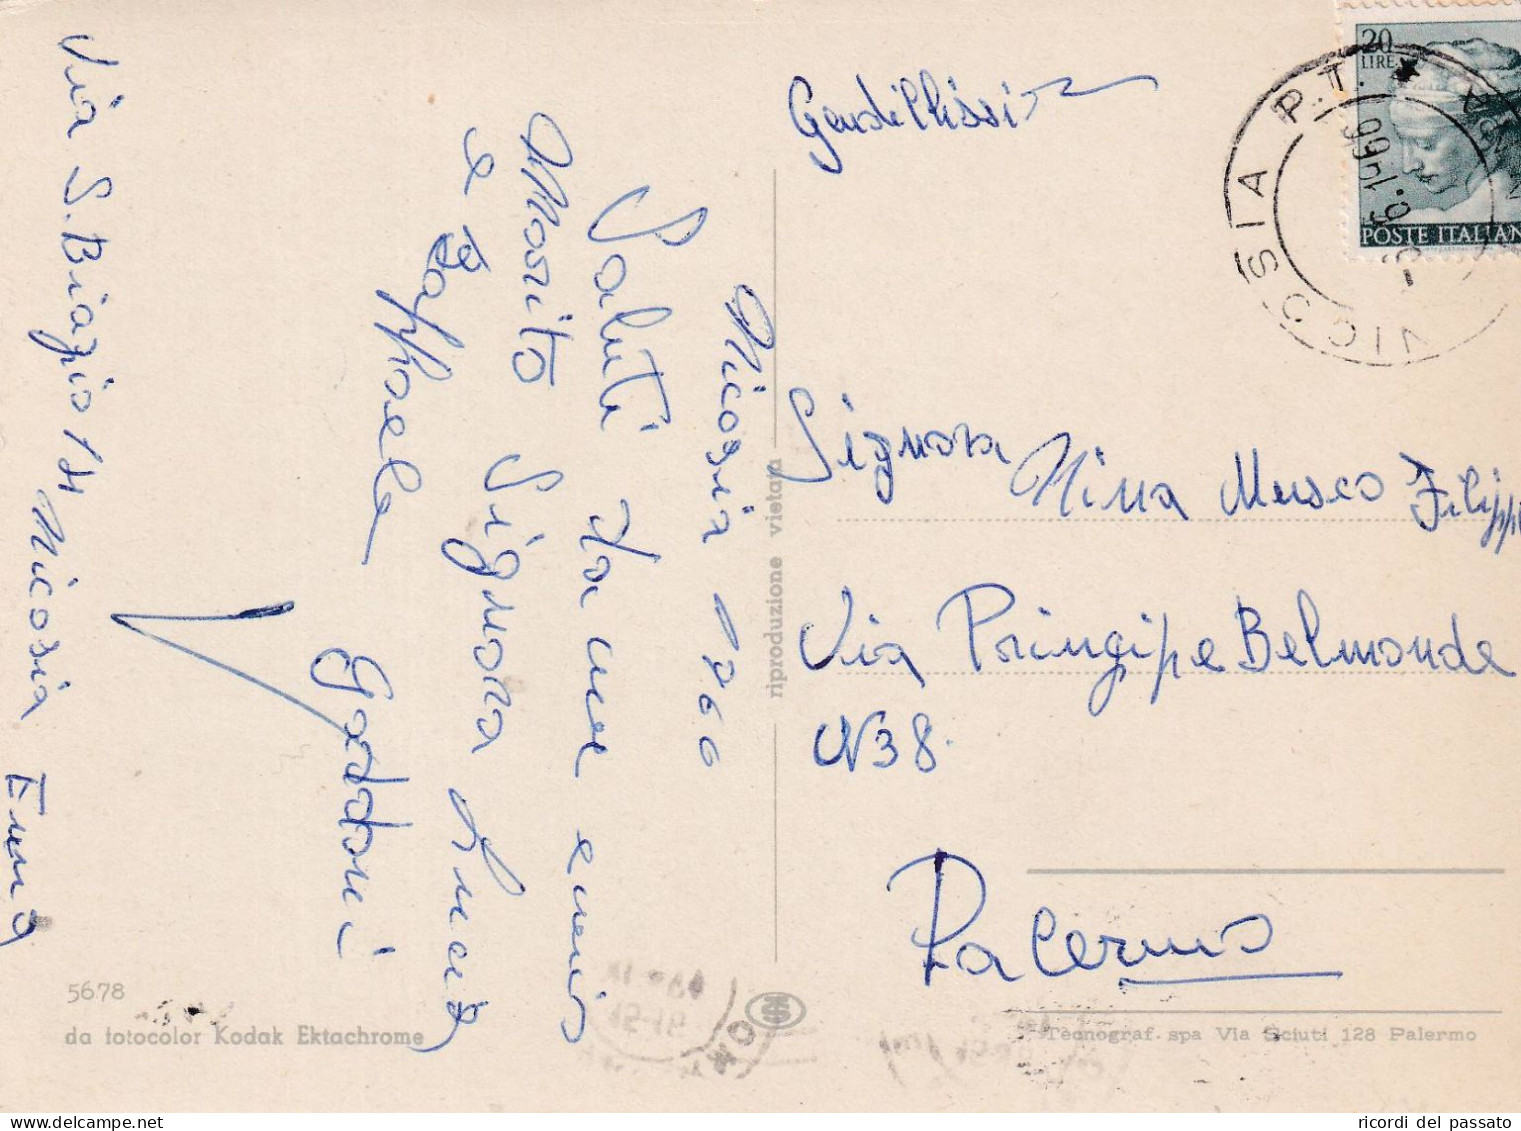 Via S. Biagio 14
Nicosia Enna
Nicosia 1966
Saluti da me e mio
Marito Signora Lucia
e Raffaela
Gaddoni
Gentillissi
Signora Nina Musco Filippo
Via Principe Belmonde
N 38.
Palermo
20
LIRE
POSTE ITALIAN
P.T.
NICOSIA
riproduzione vietata
5678
da fotocolor Kodak Ektachrome
Tecnograf. spa Via Sciuti 128 Palermo
ricordi del passato